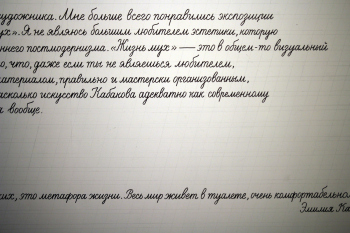 художника. Мне больше всего понравились экспозиции
ух». Я не являюсь большим любителем эстетики, которую
ннего постмодернизма. «Жизнь мух» — это в общем-то визуальный
о, что, даже если ты не являешься любителем,
материалом, правильно и мастерски организованным,
асколько искусство Кабакова адекватно как современному
а вообще.
ких, это метафора жизни. Весь мир живет в туалете, очень комфортабельно
Эмилия Ка